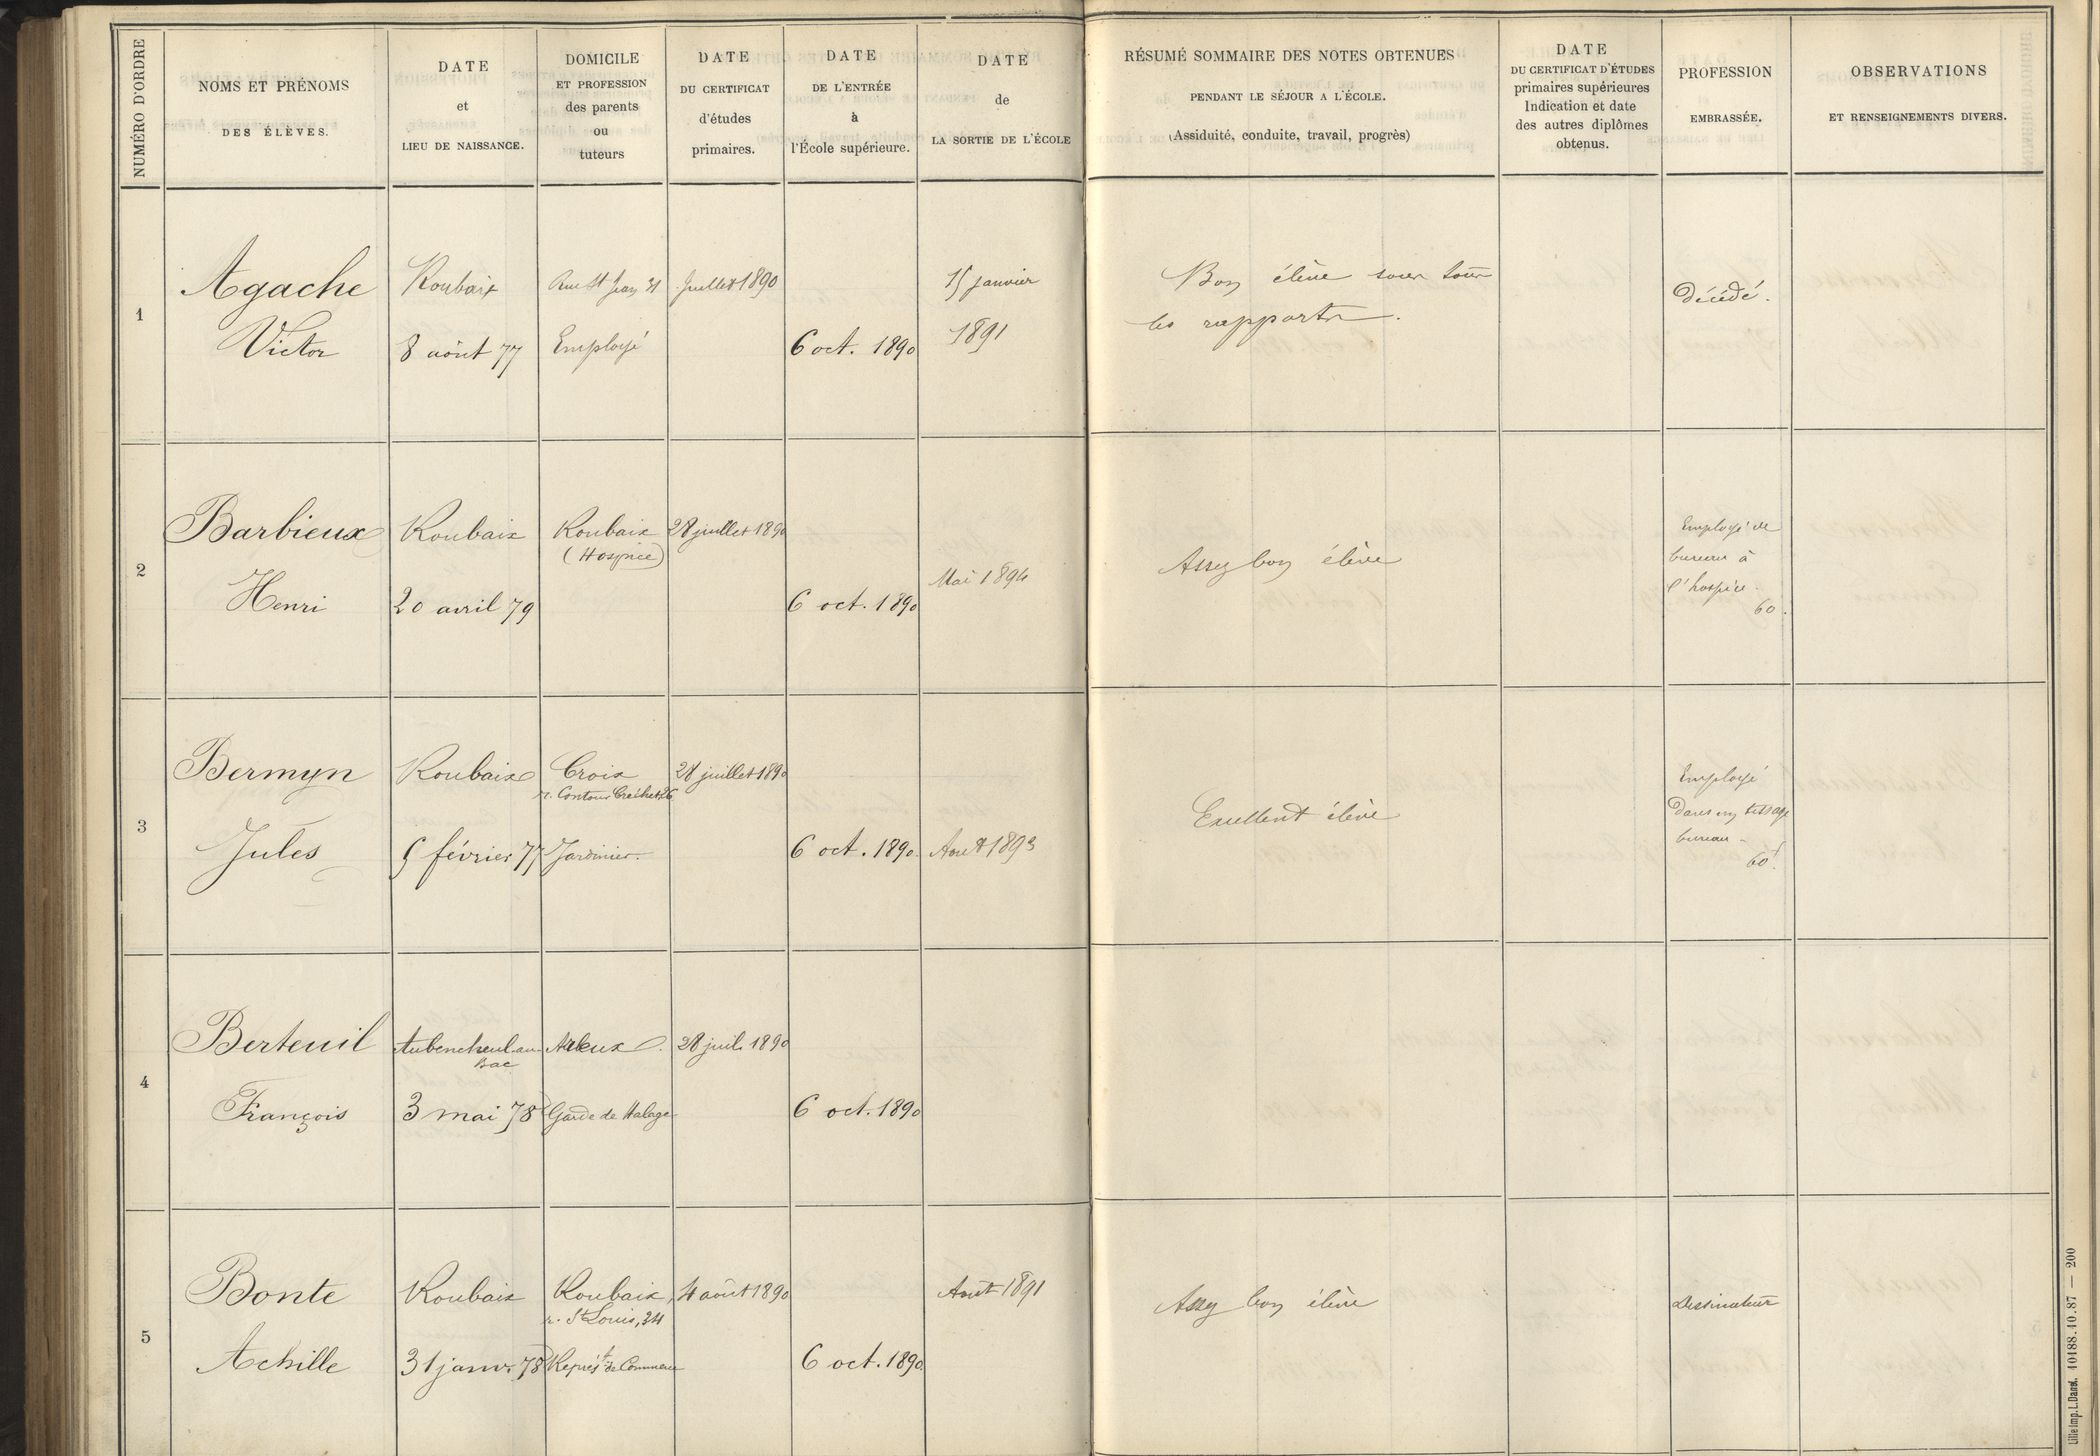 NUMÉRO D'ORDRE
NOMS ET PRÉNOMS
DES ÉLÈVES.
DATE
et
LIEU DE NAISSANCE.
DOMICILE
ET PROFESSION
des parents
ou
tuteurs
DATE
DU CERTIFICAT
d'études
primaires.
DATE
DE L'ENTRÉE
à
l'École supérieure.
DATE
de
LA SORTIE DE L'ÉCOLE
RÉSUMÉ SOMMAIRE DES NOTES OBTENUES
PENDANT LE SÉJOUR A L'ÉCOLE.
(Assiduité, conduite, travail, progrès)
DATE
DU CERTIFICAT D'ÉTUDES
primaires supérieures
Indication et date
des autres diplômes
obtenus.
PROFESSION
EMBRASSÉE.
OBSERVATIONS
ET RENSEIGNEMENTS DIVERS.
1
Agache
Victor
Roubaix
8 août 77
Rue St Jean 31
Employé
Juillet 1890
6 oct. 1890
15 janvier
1891
Bon élève sous tous
les rapports.
Décédé.
2
Barbieux
Henri
Roubaix
20 avril 79
Roubaix
(Hospice)
28 juillet 1890
6 oct. 1890
Mai 1894
Assez bon élève
Employé de
bureau à
l'hospice.
60.
3
Bermyn
Jules
Roubaix
5 février 77
Croix
r. Contour Créchet, 26
Jardinier.
28 juillet 1890
6 oct. 1890.
Août 1893
Excellent élève
Employé
dans un tissage
bureau -
60f
4
Berteuil
François
Aubencheul-au-
Bac
3 mai 78
Arleux.
Garde de Halage
28 juil. 1890
6 oct. 1890
5
Bonte
Achille
Roubaix
31 janv. 78
Roubaix,
r. St Louis, 34
Représt de Commerce
4 août 1890
6 oct. 1890.
Août 1891
Assez bon élève
Dessinateur
Lille Imp. L. Danel. 10188.10.87 — 200